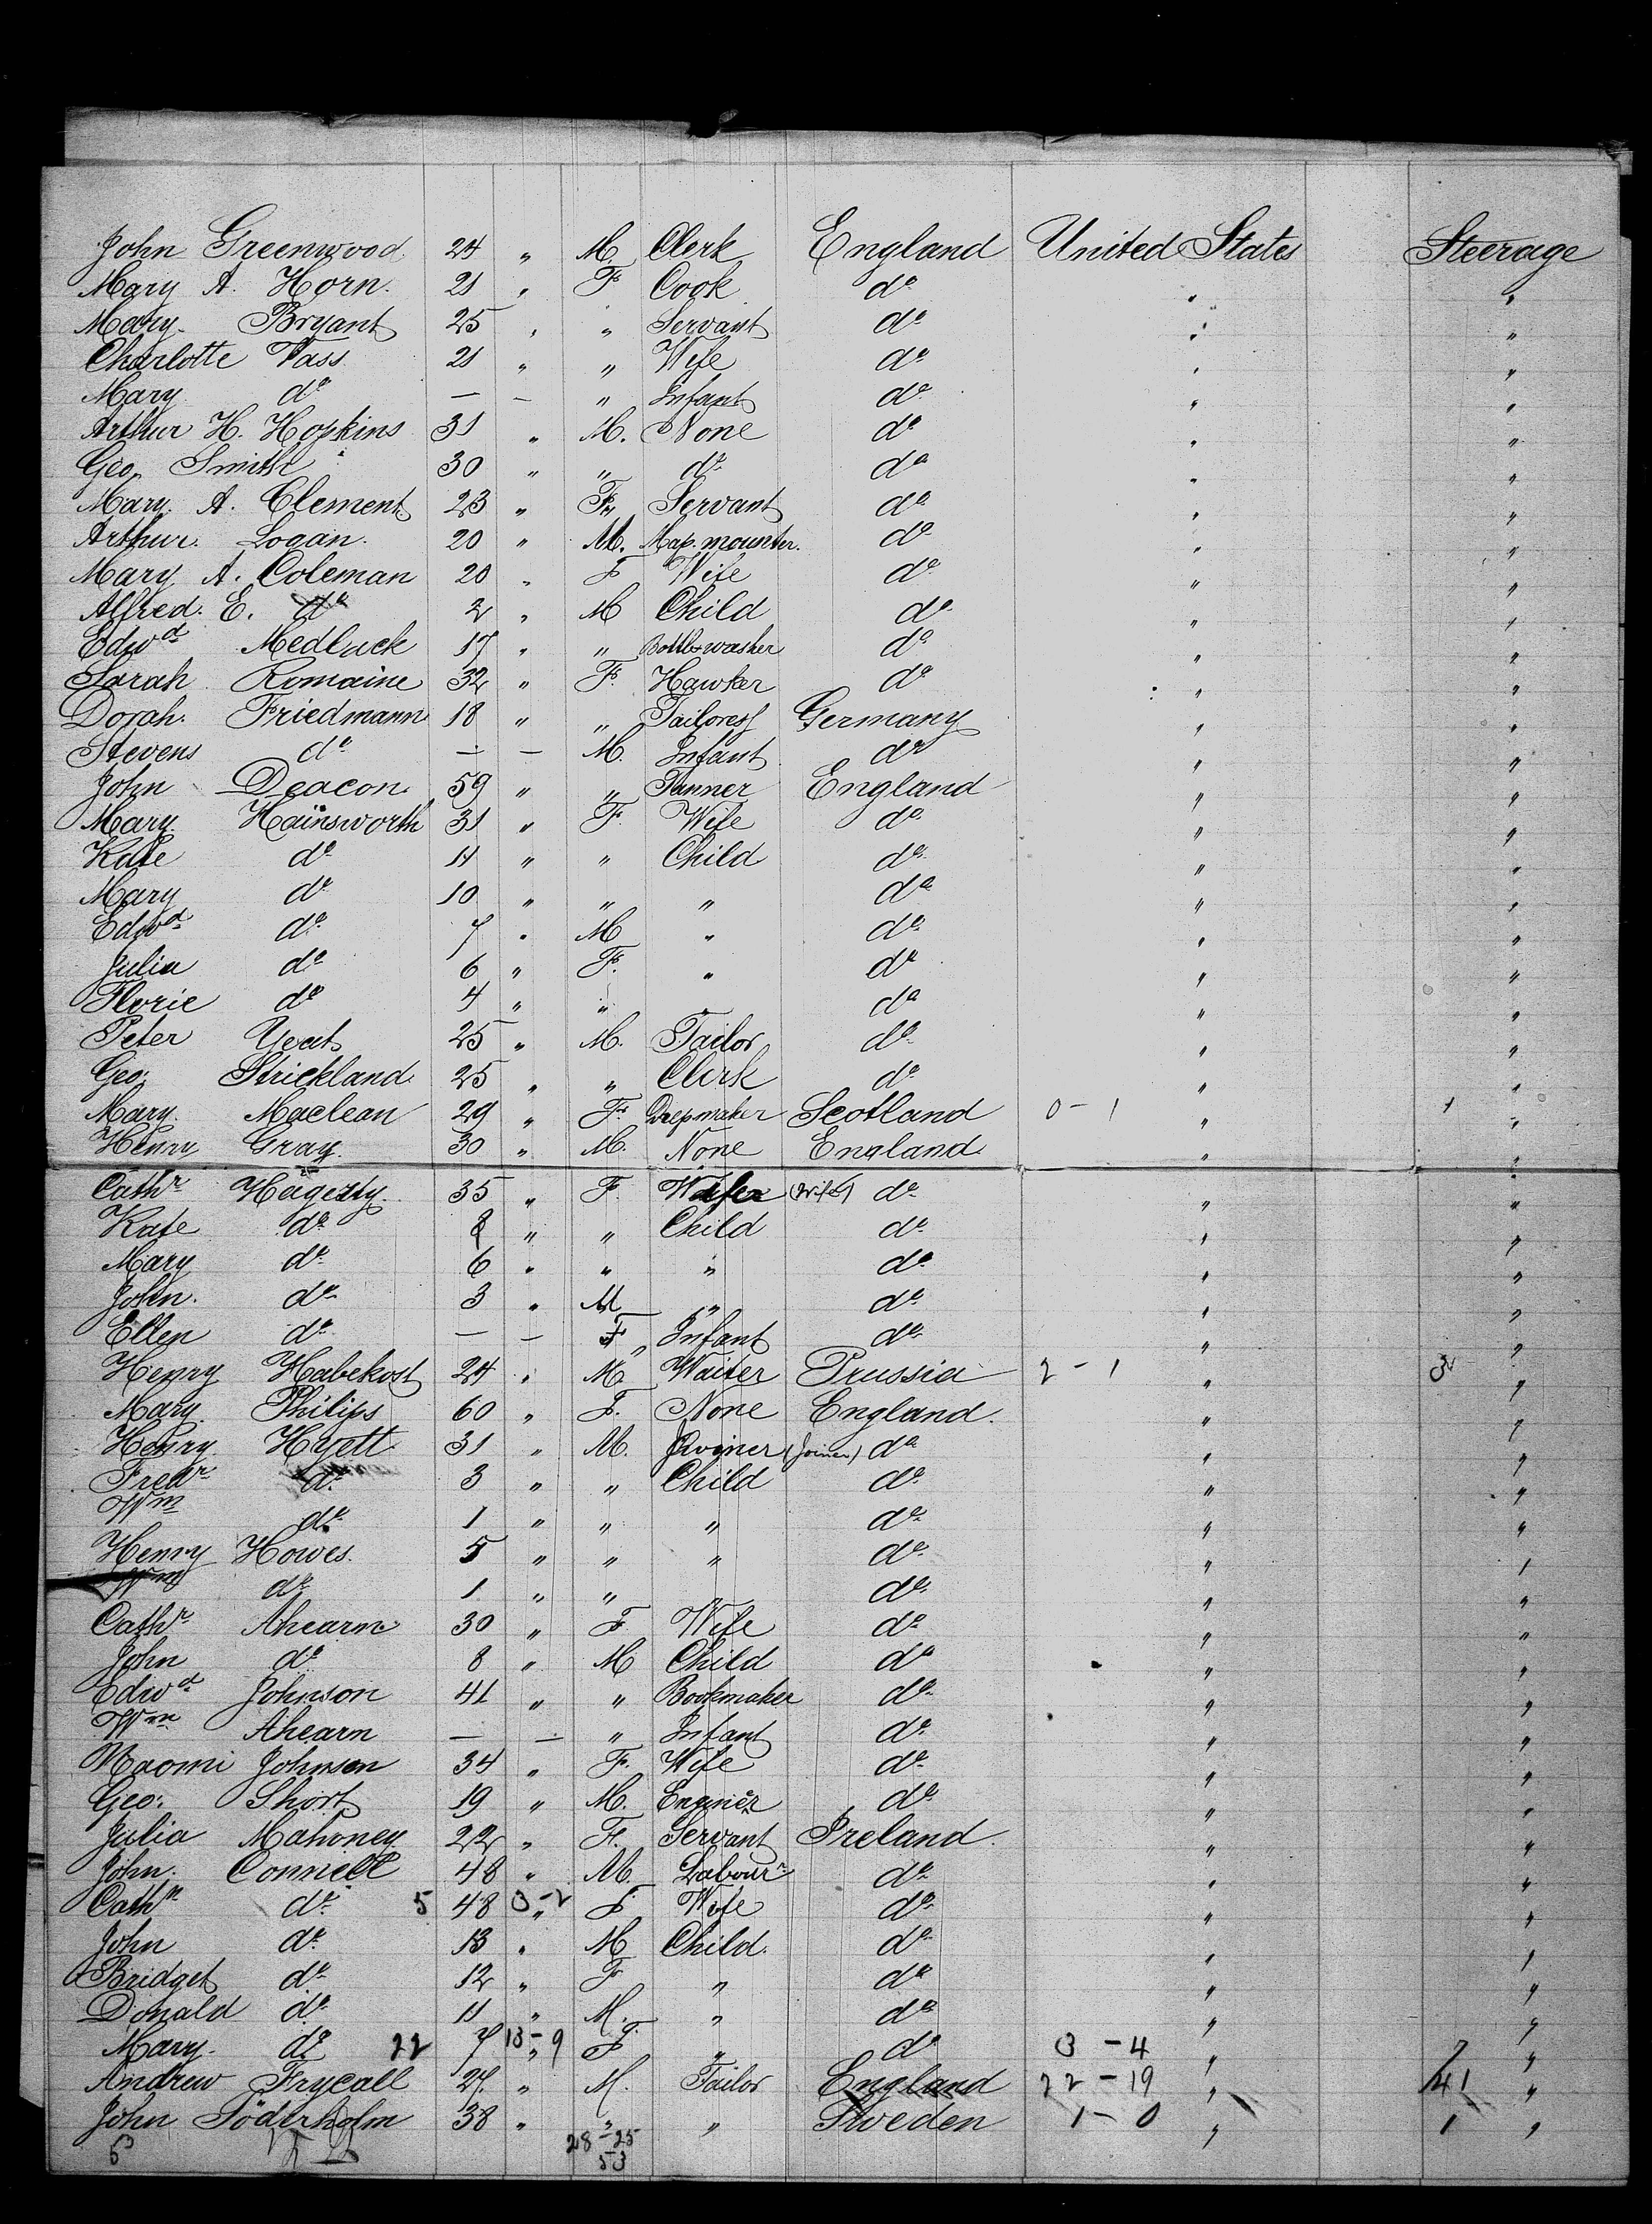 John Greenwood 24 " M. Clerk England United States Steerage
Mary A. Horn. 21 " F Cook do " "
Mary Bryant 25 " " Servant do " "
Charlotte Vass 21 " " Wife do " "
Mary do — — " Infant do " "
Arthur H. Hopkins 31 " M. None do " "
Geo. Smith 30 " " do do " "
Mary A. Clement 23 " F. Servant do " "
Arthur. Logan. 20 " M. Map. mounter. do " "
Mary A. Coleman 20 " F Wife do " "
Alfred. E. do 2 " M Child do " "
Edwd Medluck 17 " " Bottle washer do " "
Sarah Romaine 32 " F. Hawker do " "
Dorah. Friedmann 18 " " Tailoress Germany " "
Stevens do — — M. Infant do " "
John Deacon 59 " " Tanner England " "
Mary Hainsworth 31 " F. Wife do " "
Kate do 11 " " Child do " "
Mary do 10 " " " do " "
Edwd do 7 " M " do " "
Julia do 6 " F. " do " "
Florie do 4 " " do " "
Peter Yeats 25 " M. Tailor do " "
Geo: Strickland 25 " " Clerk do " "
Mary Maclean 29 " F. Scotland 0 - 1 " 1 "
Henry Gray. 30 " M. None England " "
Cathr Hegerty. 35 " F. Wife (Wife) do " "
Kate do 8 " " Child do " "
Mary do 6 " " " do " "
John. do 3 " M " do " "
Ellen do — — F Infant do " "
Henry Habekost 24 " M Waiter Prussia 2 - 1 " 3 "
Mary Philips 60 " F. None England. " "
Henry Hyett 31 " M. Joiner (Joiner) do " "
Fredr do 3 " " Child do " "
Wm do 1 " " " do " "
Henry Howes. 5 " " " do " "
Wm do 1 " " " do " "
Cathr Ahearn 30 " F Wife do " "
John do 8 " M Child do " "
Edwd Johnson 41 " " Bookmaker do " "
Wm Ahearn — — " Infant do " "
Naomi Johnson 34 " F. Wife do " "
Geo: Short 19 " M. Enginer do " "
Julia Mahoney 22 " F. Servant Ireland. " "
John. Connell 48 " M. Labourr do " "
Cathn do 5 48 3-2 " F Wife do " "
John do 13 " M Child. do " "
Bridget do 12 " F " do " "
Donald do 11 " M. " do " "
Mary. do 22 7 13-9 " F " do 3 - 4 " 7 "
Andrew Frycall 27. " M. Tailor England 22 - 19 " 41 "
John Söderholm 38 " " " Sweden 1 - 0 " 1 "
28-25
53